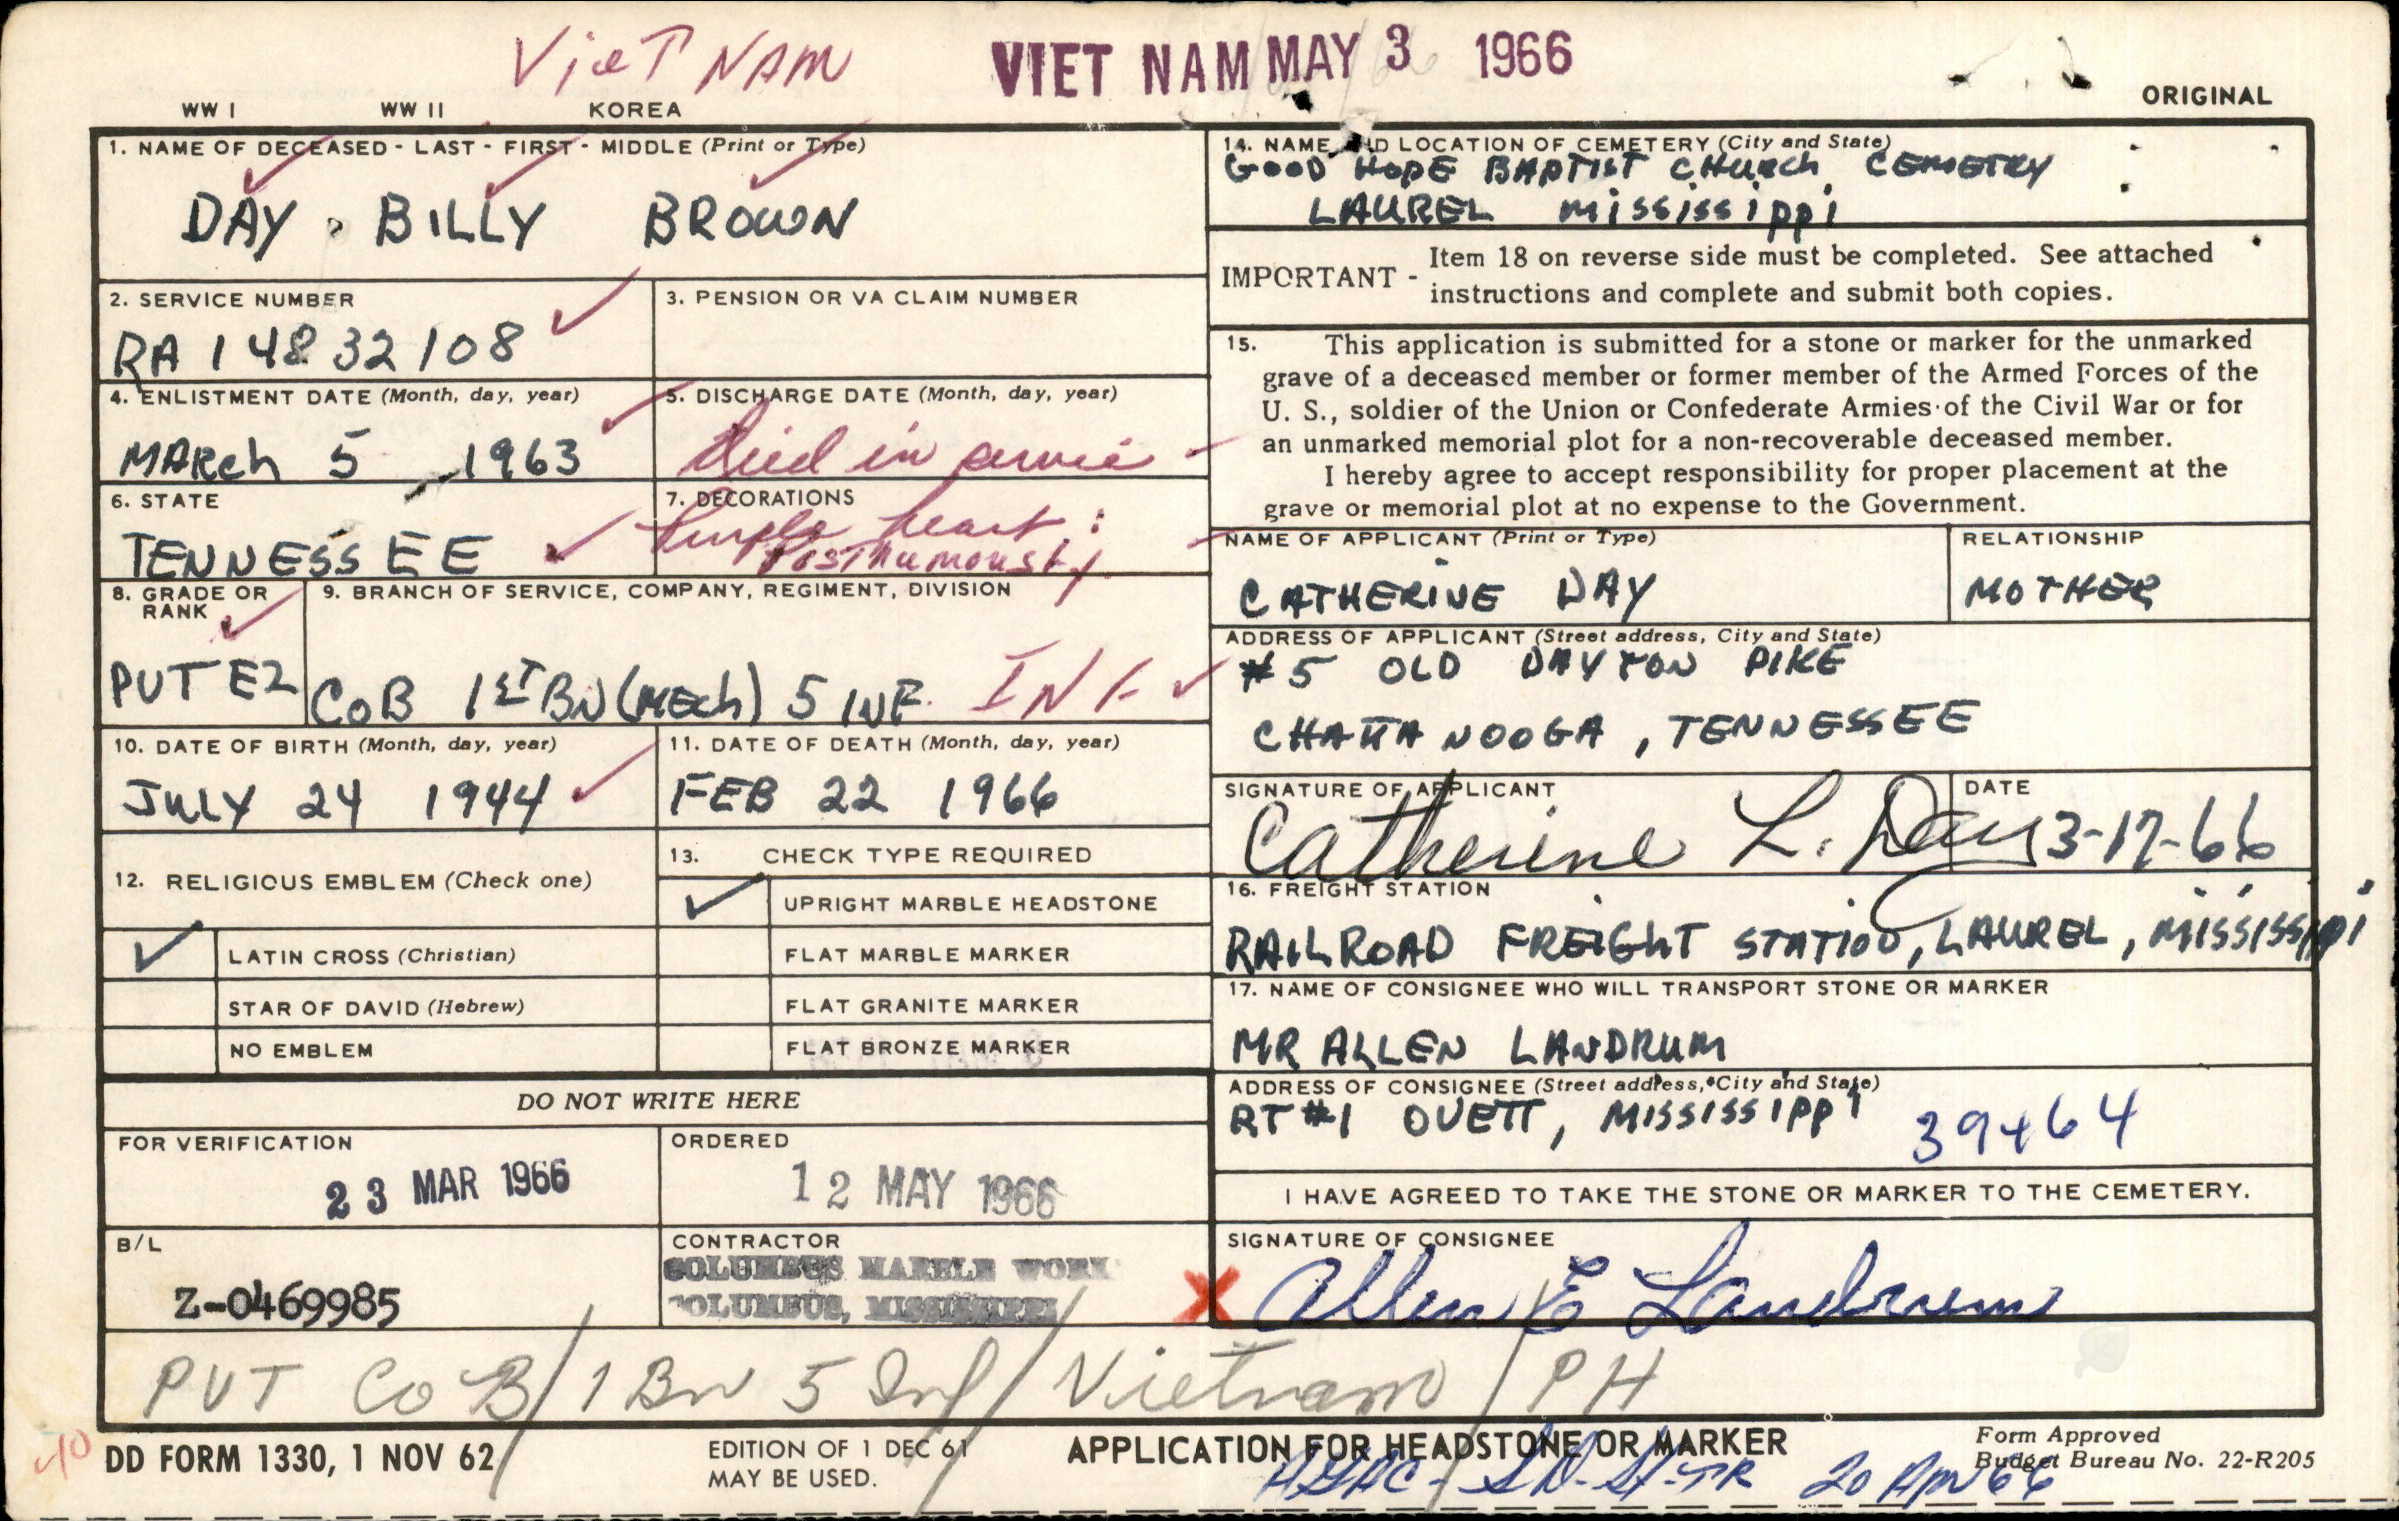 VieT NAM VIET NAM MAY 3 1966
WW I WW II KOREA ORIGINAL
1. NAME OF DECEASED - LAST - FIRST - MIDDLE (Print or Type)
DAY BILLY BROWN
2. SERVICE NUMBER
RA 14832108
3. PENSION OR VA CLAIM NUMBER
4. ENLISTMENT DATE (Month, day, year)
MARch 5 1963
5. DISCHARGE DATE (Month, day, year)
died in
6. STATE
TENNESSEE
7. DECORATIONS
Purple heart
Posthumously
8. GRADE OR
RANK
PVT E2
9. BRANCH OF SERVICE, COMPANY, REGIMENT, DIVISION
CoB 1ST BN (MEch) 5 INF. INF
10. DATE OF BIRTH (Month, day, year)
JULY 24 1944
11. DATE OF DEATH (Month, day, year)
FEB 22 1966
12. RELIGIOUS EMBLEM (Check one)
LATIN CROSS (Christian)
STAR OF DAVID (Hebrew)
NO EMBLEM
13. CHECK TYPE REQUIRED
UPRIGHT MARBLE HEADSTONE
FLAT MARBLE MARKER
FLAT GRANITE MARKER
FLAT BRONZE MARKER
DO NOT WRITE HERE
FOR VERIFICATION
23 MAR 1966
ORDERED
12 MAY 1966
B/L
Z-0469985
CONTRACTOR
COLUMBUS MARBLE WORK
COLUMBUS, MISSISSIPPI
14. NAME AND LOCATION OF CEMETERY (City and State)
GOOD HOPE BAPTIST CHURCh CEMETRY
LAUREL Mississippi
IMPORTANT - Item 18 on reverse side must be completed. See attached
instructions and complete and submit both copies.
15. This application is submitted for a stone or marker for the unmarked
grave of a deceased member or former member of the Armed Forces of the
U. S., soldier of the Union or Confederate Armies of the Civil War or for
an unmarked memorial plot for a non-recoverable deceased member.
I hereby agree to accept responsibility for proper placement at the
grave or memorial plot at no expense to the Government.
NAME OF APPLICANT (Print or Type)
CATHERINE DAY
RELATIONSHIP
MOTHER
ADDRESS OF APPLICANT (Street address, City and State)
#5 OLD DAYTON PIKE
CHATTANOOGA, TENNESSEE
SIGNATURE OF APPLICANT
Catherine L. Day
DATE
3-17-66
16. FREIGHT STATION
RAILROAD FREIGhT STATION, LAUREL, MISSISSIPPI
17. NAME OF CONSIGNEE WHO WILL TRANSPORT STONE OR MARKER
MR ALLEN LANDRUM
ADDRESS OF CONSIGNEE (Street address, City and State)
RT #1 OVETT, MISSISSIPPI 39464
I HAVE AGREED TO TAKE THE STONE OR MARKER TO THE CEMETERY.
SIGNATURE OF CONSIGNEE
X Allen E Landrum
PVT Co B/1 Bn 5 Inf/Vietnam/PH
10
DD FORM 1330, 1 NOV 62
EDITION OF 1 DEC 61
MAY BE USED.
APPLICATION FOR HEADSTONE OR MARKER
Form Approved
Budget Bureau No. 22-R205
20 Apr 66